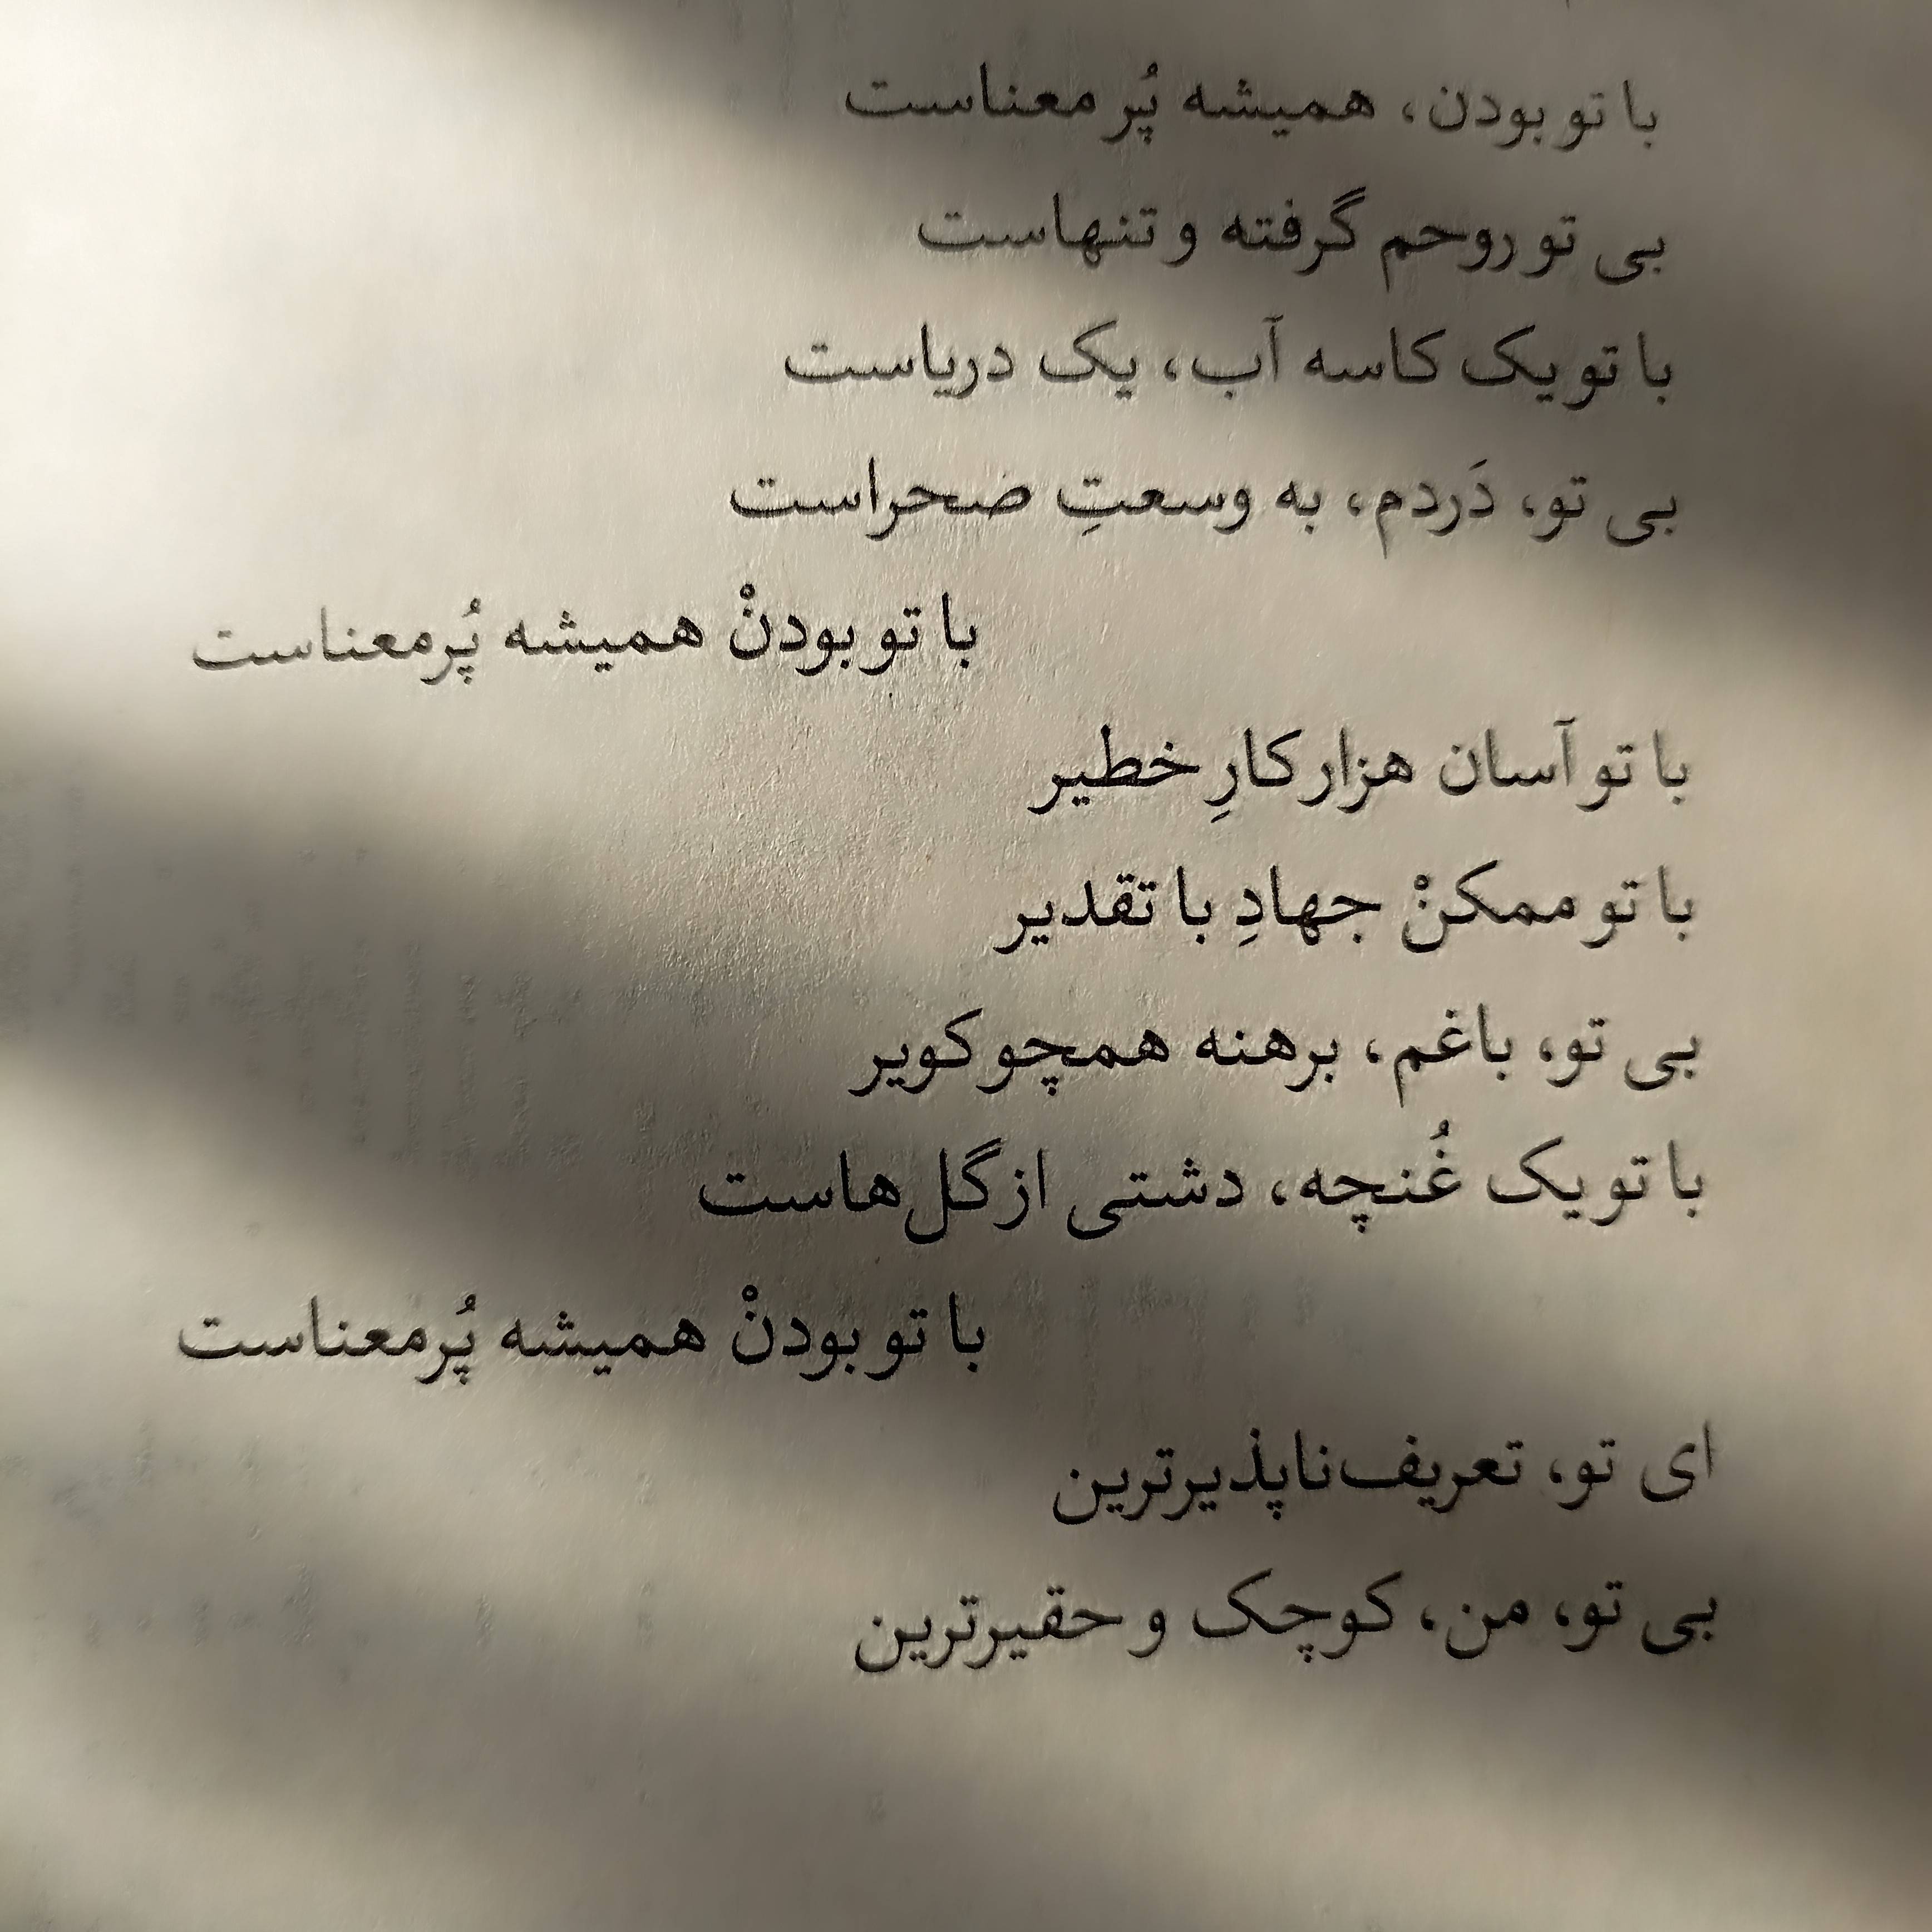 با تو بودن، همیشه پُر معناست
بی تو روحم گرفته و تنهاست
با تو یک کاسه آب، یک دریاست
بی تو، دَردم، به وسعتِ صحراست
با تو بودنْ همیشه پُرمعناست
با تو آسان هزار کارِ خطیر
با تو ممکنْ جهادِ با تقدیر
بی تو، باغم، برهنه همچو کویر
با تو یک غُنچه، دشتی از گل‌هاست
با تو بودنْ همیشه پُرمعناست
ای تو، تعریف‌ناپذیرترین
بی تو، من، کوچک و حقیرترین